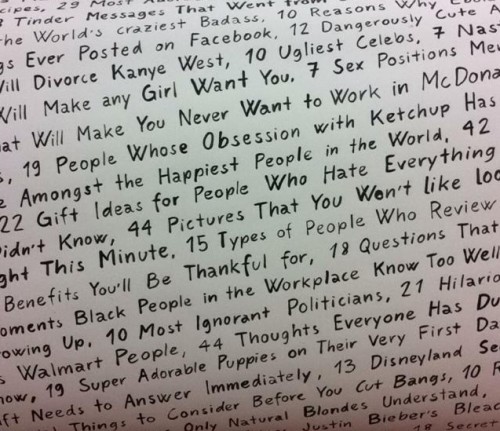 ipes, 29 Most
8 Tinder Messages That Went from
the World's craziest Badass, 10 Reasons Why
gs Ever Posted on Facebook, 12 Dangerously Cute A
Will Divorce Kanye West, 10 Ugliest Celebs, 7 Nas
Will Make any Girl Want You. 7 Sex Positions Me
hat Will Make You Never Want to Work in McDona
s, 19 People Whose Obsession with Ketchup Has
e Amongst the Happiest People in the World, 42
22 Gift Ideas for People Who Hate Everything
Didn't Know, 44 Pictures That You Won't like loo
ght This Minute. 15 Types of People Who Review
Benefits You'll Be Thankful for, 18 Questions That
oments Black People in the Workplace Know Too Well
rowing Up. 10 Most Ignorant Politicians, 21 Hilario
s Walmart People, 44 Thoughts Everyone Has Du
now, 19 Super Adorable Puppies on Their Very First Da
ift Needs to Answer Immediately, 13 Disneyland Se
Things to Consider Before You Cut Bangs, 10 R
Only Natural Blondes Understand,
Justin Bieber's Bleac
18 Secret